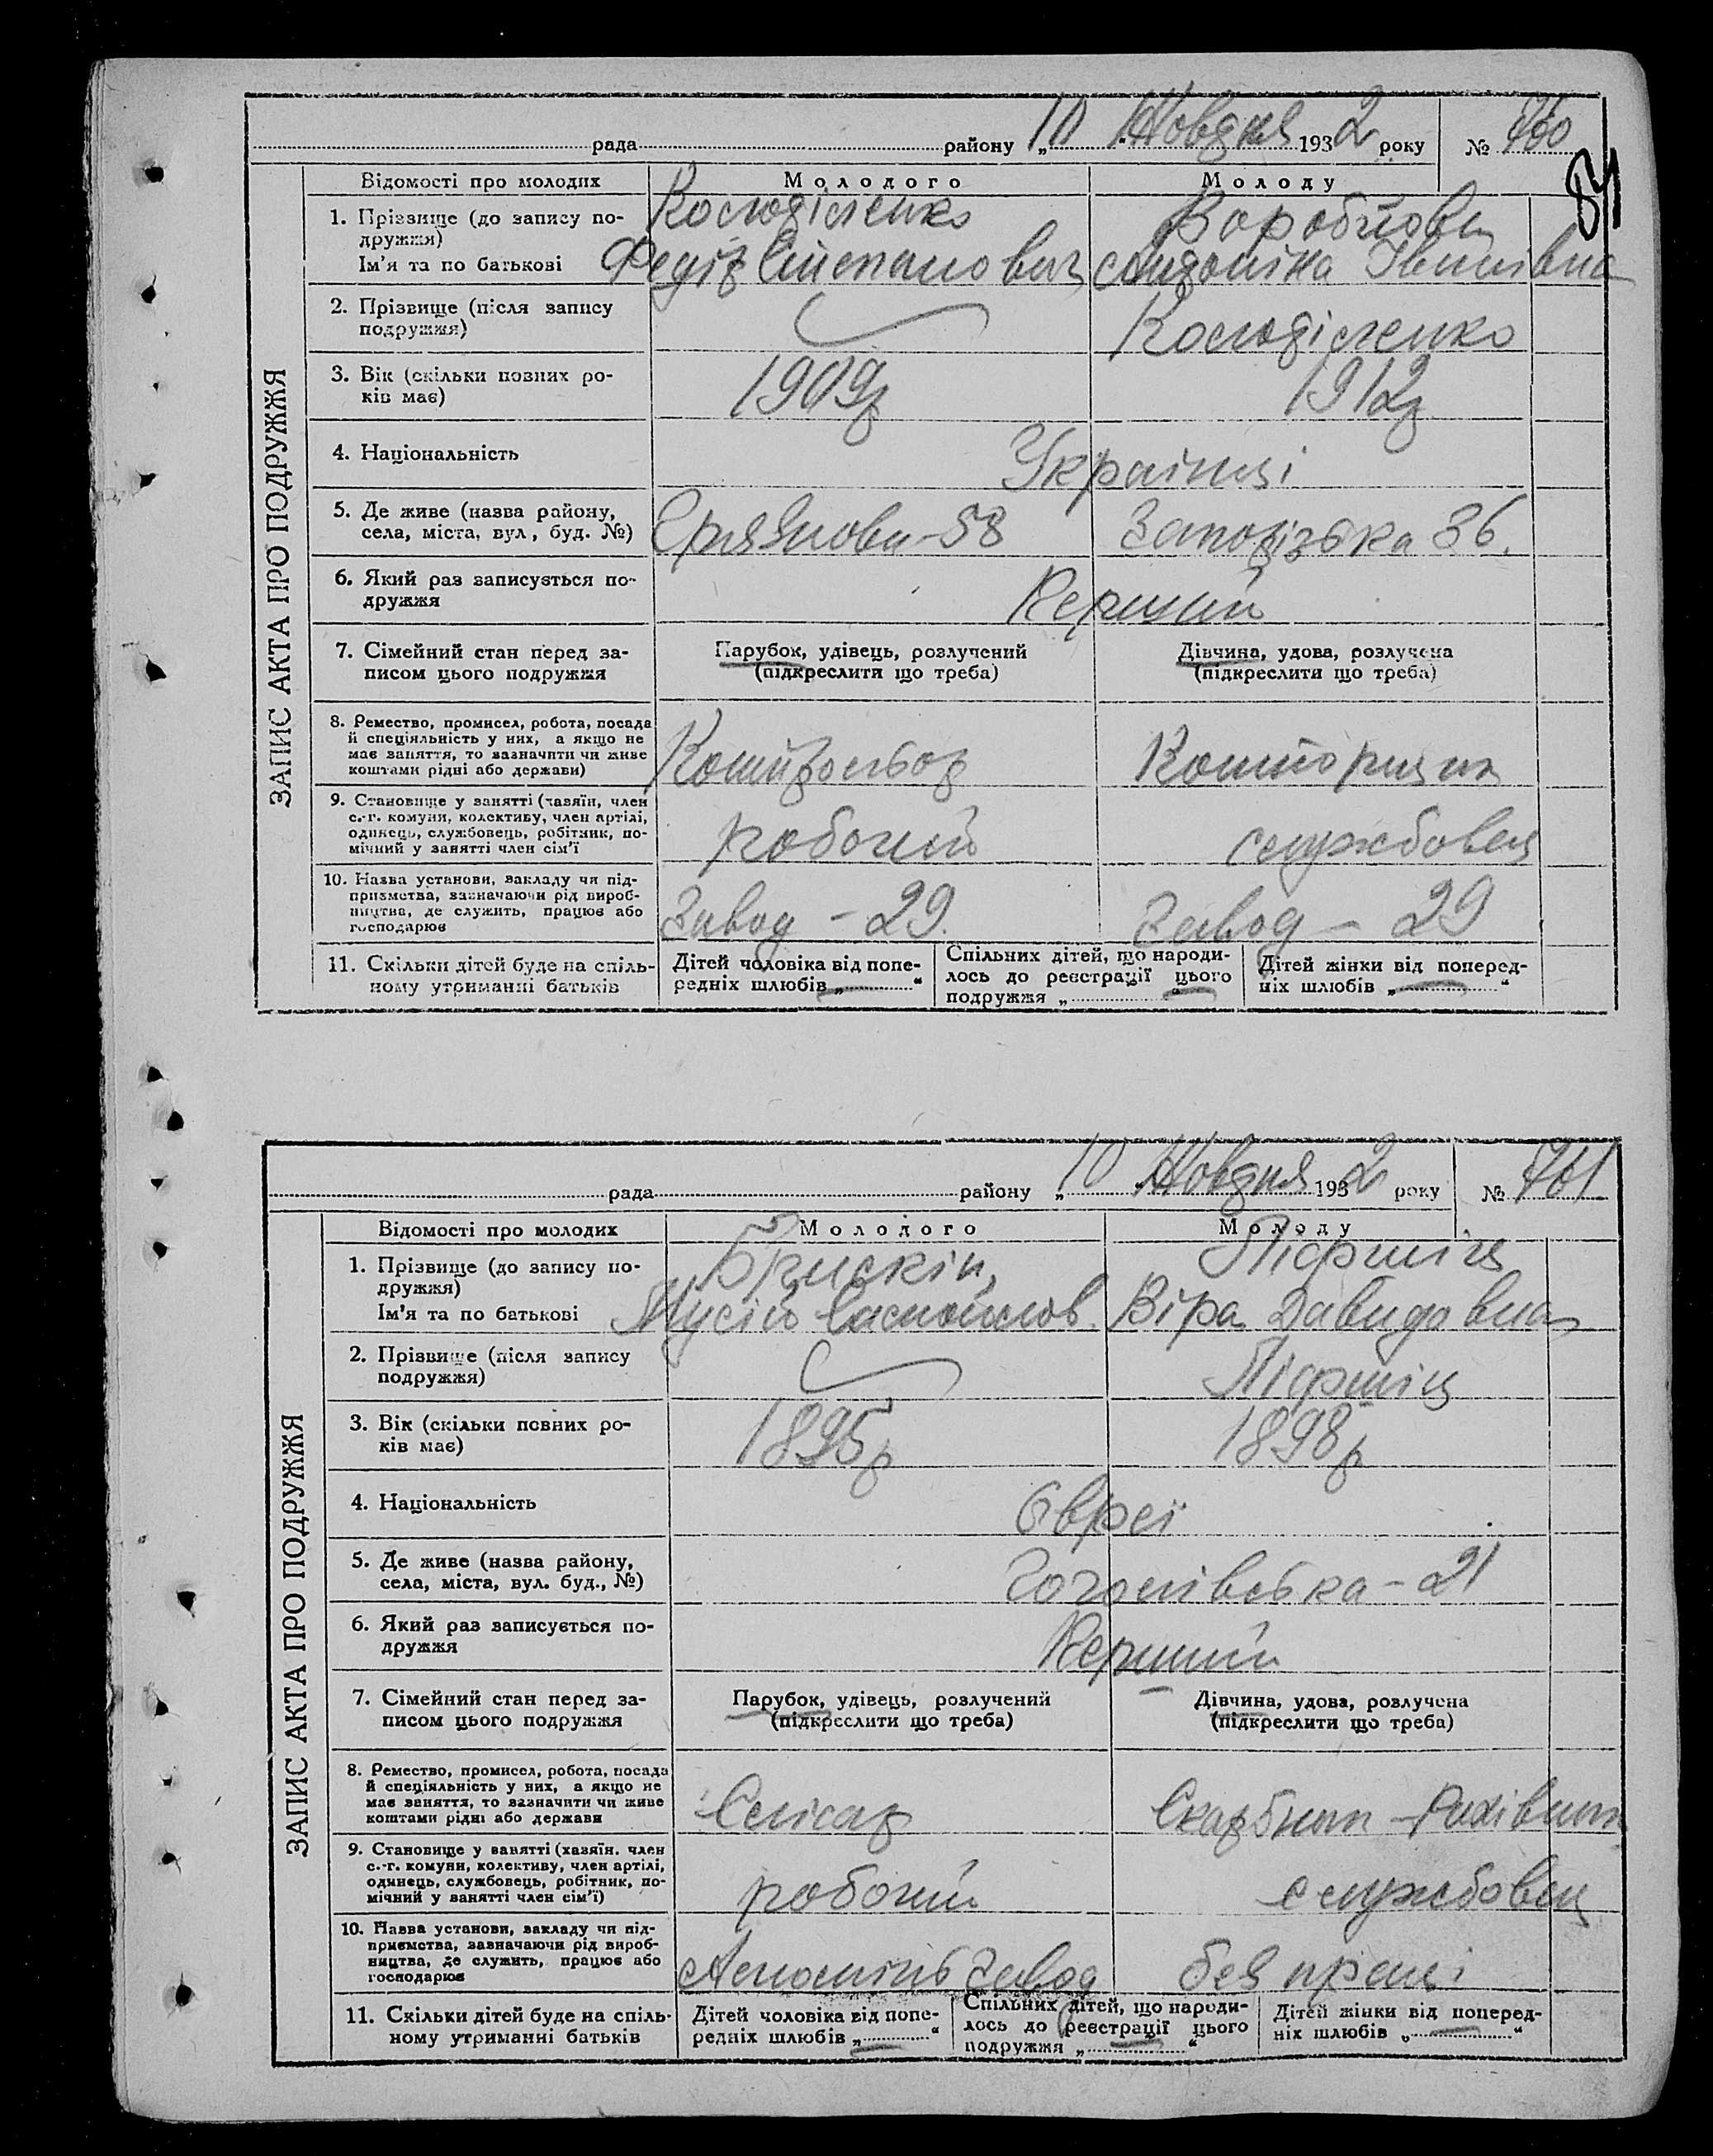 рада району „10“ Жовдня 1932 року № 760
81
ЗАПИС АКТА ПРО ПОДРУЖЖЯ
Відомості про молодих Молодого Молоду
1. Прізвище (до запису по-
дружжя)
Ім'я та по батькові
Федір Степанович Іванівна
2. Прізвище (після запису
подружжя)
3. Вік (скільки повних ро-
ків має)
1909р 1912р
4. Національність
Українці
5. Де живе (назва району,
села, міста, вул, буд. №)
58 36.
6. Який раз записується по-
дружжя
Перший
7. Сімейний стан перед за-
писом цього подружжя
Парубок, удівець, розлучений
(підкреслити що треба)
Дівчина, удова, розлучена
(підкреслити що треба)
8. Ремество, промисел, робота, посада
й спеціяльність у них, а якщо не
має заняття, то зазначити чи живе
коштами рідні або держави)
9. Становище у занятті (хазяїн, член
с.-г. комуни, колективу, член артілі,
одинець, службовець, робітник, по-
мічний у занятті член сім'ї
робочий службовец
10. Назва установи, закладу чи під-
приємства, зазначаючи рід вироб-
ництва, де служить, працює або
господарює
Завод - 29. Завод - 29
11. Скільки дітей буде на спіль-
ному утриманні батьків
Дітей чоловіка від попе-
редніх шлюбів „ — “
Спільних дітей, що народи-
лось до реєстрації цього
подружжя „ — “
Дітей жінки від поперед-
ніх шлюбів „ — “
рада району „10“ Жовдня 1932 року № 761
ЗАПИС АКТА ПРО ПОДРУЖЖЯ
Відомості про молодих Молодого Молоду
1. Прізвище (до запису по-
дружжя)
Брискін,
Ім'я та по батькові
Мусій Віра Давидовна
2. Прізвище (після запису
подружжя)
3. Вік (скільки повних ро-
ків має)
1895р 1898р
4. Національність
Євреї
5. Де живе (назва району,
села, міста, вул. буд., №)
Гоголівська - 21
6. Який раз записується по-
дружжя
Перший
7. Сімейний стан перед за-
писом цього подружжя
Парубок, удівець, розлучений
(підкреслити що треба)
Дівчина, удова, розлучена
(підкреслити що треба)
8. Ремество, промисел, робота, посада
й спеціяльність у них, а якщо не
має заняття, то зазначити чи живе
коштами рідні або держави
Слісар
9. Становище у занятті (хазяїн. член
с.-г. комуни, колективу, член артілі,
одинець, службовець, робітник, по-
мічний у занятті член сім'ї)
робочий службовец
10. Назва установи, закладу чи під-
приємства, зазначаючи рід вироб-
ництва, де служить, працює або
господарює
завод без праці
11. Скільки дітей буде на спіль-
ному утриманні батьків
Дітей чоловіка від попе-
редніх шлюбів „ — “
Спільних дітей, що народи-
лось до реєстрації цього
подружжя „ — “
Дітей жінки від поперед-
ніх шлюбів „ — “